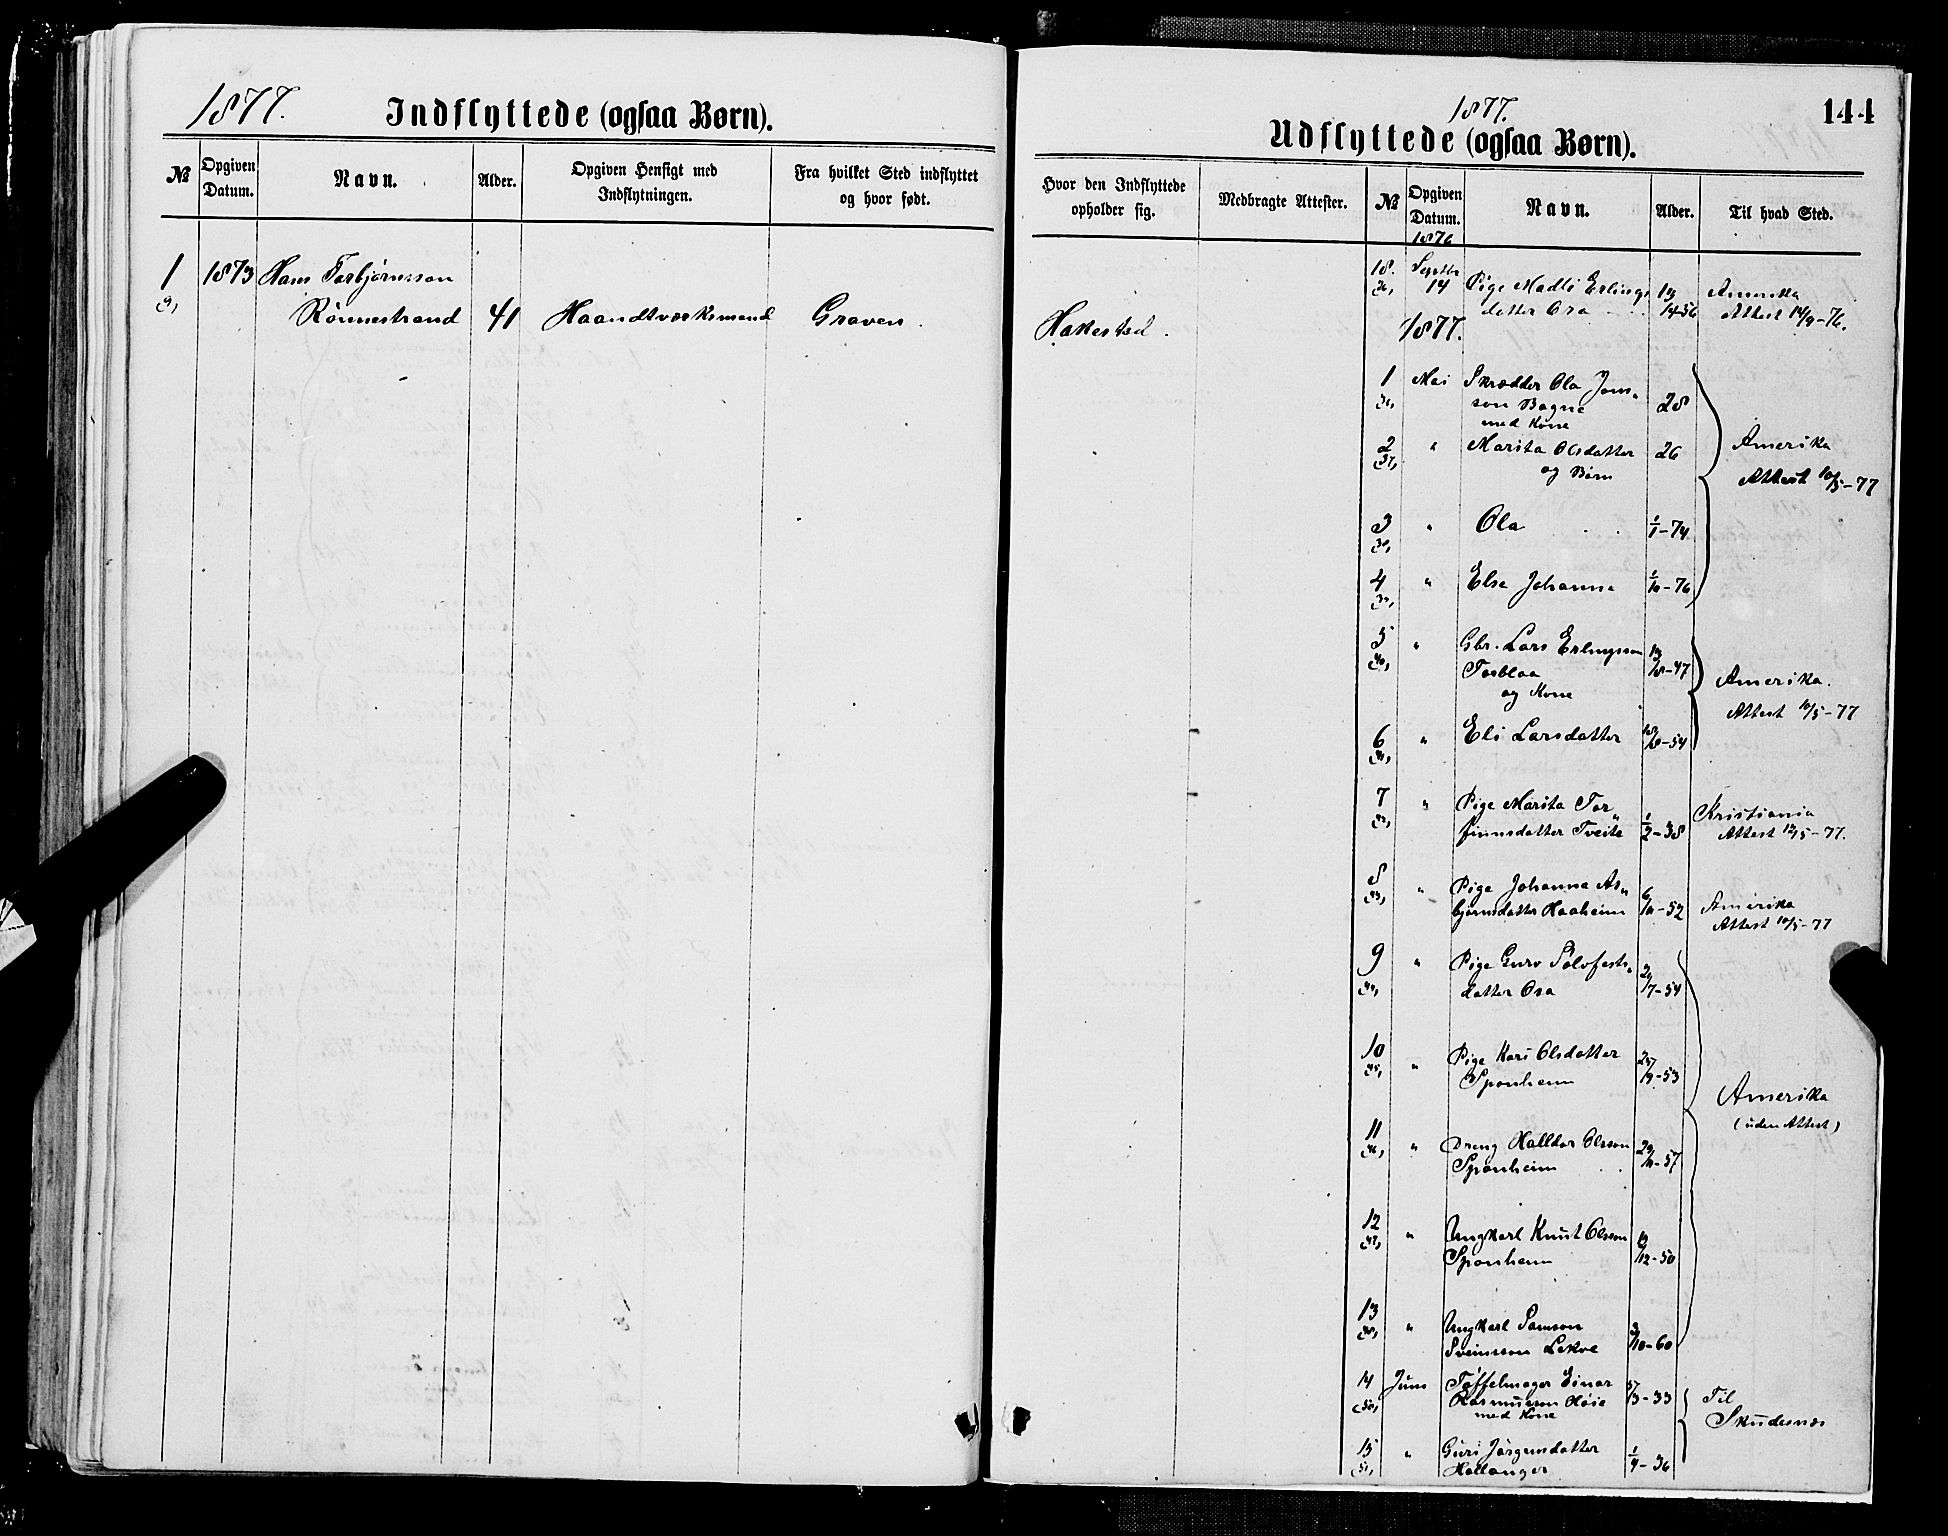 1877.
Indflyttede (ogsaa Børn).
№
Opgiven Datum.
Navn.
Alder.
Opgiven Hensigt med Indflytningen.
Fra hvilket Sted indflyttet og hvor født.
1 1873 Hans Torbjørnsson
Rønnestrand 41 Haandtværksmand Graven.
1877.
144
Udflyttede (ogsaa Børn).
Hvor den Indflyttede opholder sig.
Medbragte Attester.
№
Opgiven Datum.
Navn.
Alder.
Til hvad Sted.
Hakestad.
1876
18. Septbr 14 Pige Madli Erlings
datter Ora 13/14-56 Amerika
Attest 14/9-76.
1877.
1 Mai Skrædder Ola Jons-
son Bagne 28
med Kone
2 " Marita Olsdatter 26
og Børn
Amerika
Attest 10/5-77
3 " Ola 1/1-74
4 " Else Johanne 1/10-76
5 " Gbr. Lars Erlingsson 13/8-47
Torblaa
og Kone
Amerika.
Attest 10/5-77
6 " Eli Larsdatter 18/8-54
7 " Pige Marita Tor-
finnsdatter Tveite 1/2-38
Kristiania
Attest 12/5-77.
8 " Pige Johanna As-
bjørnsdatter Haaheim 6/10-52
Amerika
Attest 10/5-77
9 " Pige Guro Solvfests-
datter Osa 24/7-54
10 " Pige Kari Olsdatter
Sponheim 27/9-53
Amerika
(uden Attest)
11 " Dreng Halldor Olsson
Sponheim 29/10-57
12 " Ungkarl Knut Olsson
Sponheim 12/12-50
13 " Ungkarl Samson
Sveinsson Lekve 3/10-60
14 Juni Tøffelmager Einar
Rasmusson Høie 5/3-33
med Kone
Til
Skudesnæs
15 " Guri Jørgensdatter
Hallanger 1/4-36